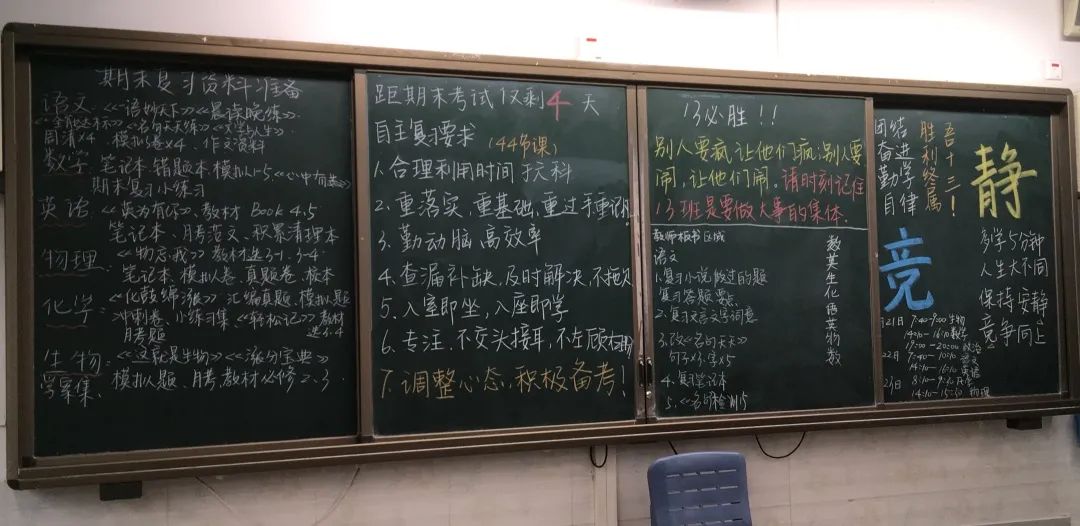 期末复习资料准备
语文:《语妙天下》《晨读晚练》
《全能达标》《名句天天练》《文学与人生》
周清×4、模拟卷×4、作文资料
数学 笔记本、错题本、模拟1-5《心中有数》
期末复习小练习
英语:《英为有你》、教材 Book 4.5
笔记本、月考范文、积累清理本
物理:《物忘我》教材选3-1、3-4
笔记本、模拟卷、真题卷、校本
化学:
汇编真题、模拟题
冲刺卷、小练习集、《轻松记》教材
月考题 选3.4
生物:《这就是生物》《涨分宝典》
学案集、模拟题、月考、教材必修2、3
距期末考试仅剩4天
自主复习要求 (44节课)
1.合理利用时间
2.重落实,重基础,重过手,重
3.勤动脑 高效率
4.查漏补缺,及时解决,不拖欠
5.入室即坐,入座即学
6.专注,不交头接耳,不左顾右盼
7.调整心态,积极备考!
13必胜!!
别人要疯,让他们疯;别人要
闹,让他们闹。请时刻记住
13班是要做大事的集体.
教师板书区域
语文
1.复习小说做过的题
复习答题要点
2.复习文言文字词意
3.改《名句天天》
句子4,字×5
4.复习笔记本
5.《名师检测》5
数
英
生
化
语
英
物
数
团结
奋进
勤学
自律
胜利终属
吾十三!
静
竞
多学5分钟
人生大不同
保持安静
竞争向上
21日 7:40-9:00 生物
14:10-16:10 数学
19:00-20:00 政治
22日 7:40-10:10 语文
14:10-16:10 英语
23日 8:10-9:30 化学
14:10-15:50 物理